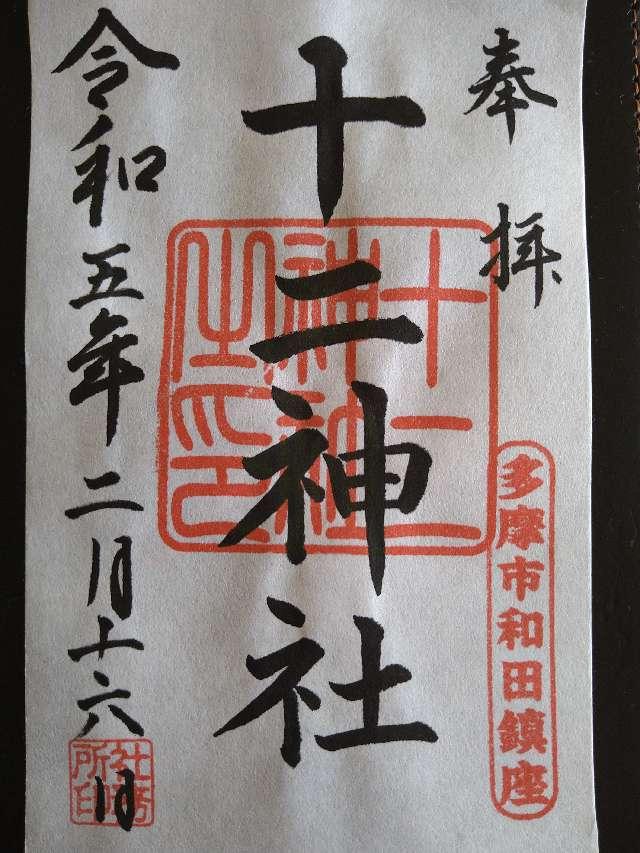 奉拝
多摩市和田鎮座
十二神社
十二神社之印
令和五年二月十六日
社務所印